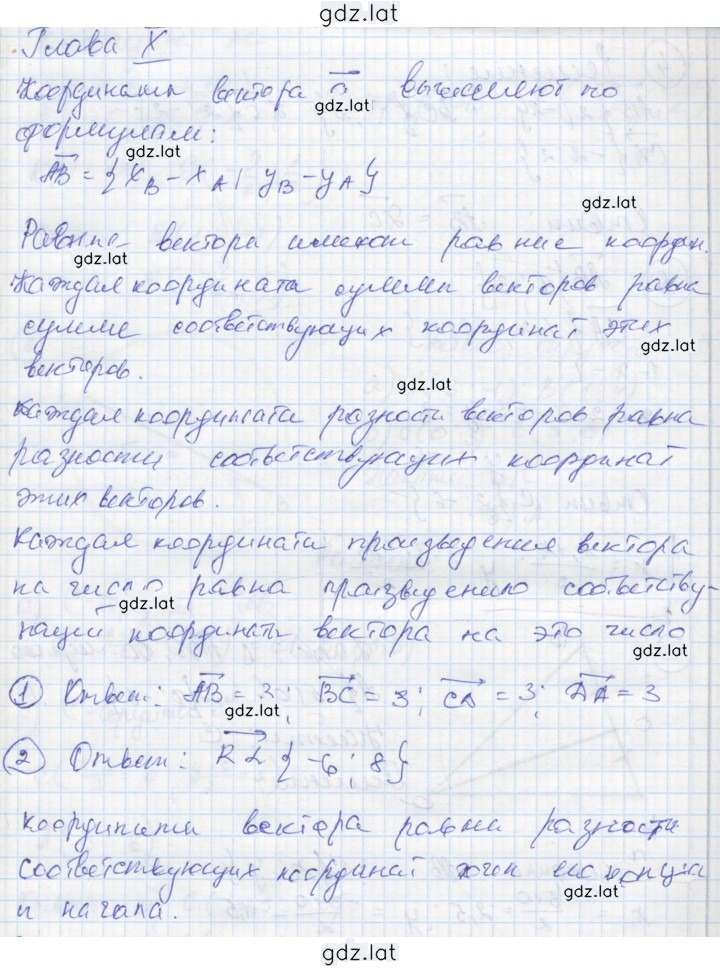 gdz.lat
Глава X
Координаты вектора a вычисляют по
gdz.lat
формулам:
gdz.lat
AB = {x_B - x_A; y_B - y_A}
gdz.lat
Равные вектора имеют равные координ.
gdz.lat
Каждая координата суммы векторов равна
сумме соответствующих координат этих
gdz.lat
векторов.
gdz.lat
Каждая координата разности векторов равна
разности соответствующих координат
этих векторов.
Каждая координата произведения вектора
на число равна произведению соответству-
gdz.lat
ющей координаты вектора на это число
gdz.lat
① Ответ: AB = 3; BC = 3; = 3; = 3
gdz.lat
② Ответ: {-6; 8}
координаты вектора равны разности
соответствующих координат точек его конца
gdz.lat
и начала.
gdz.lat